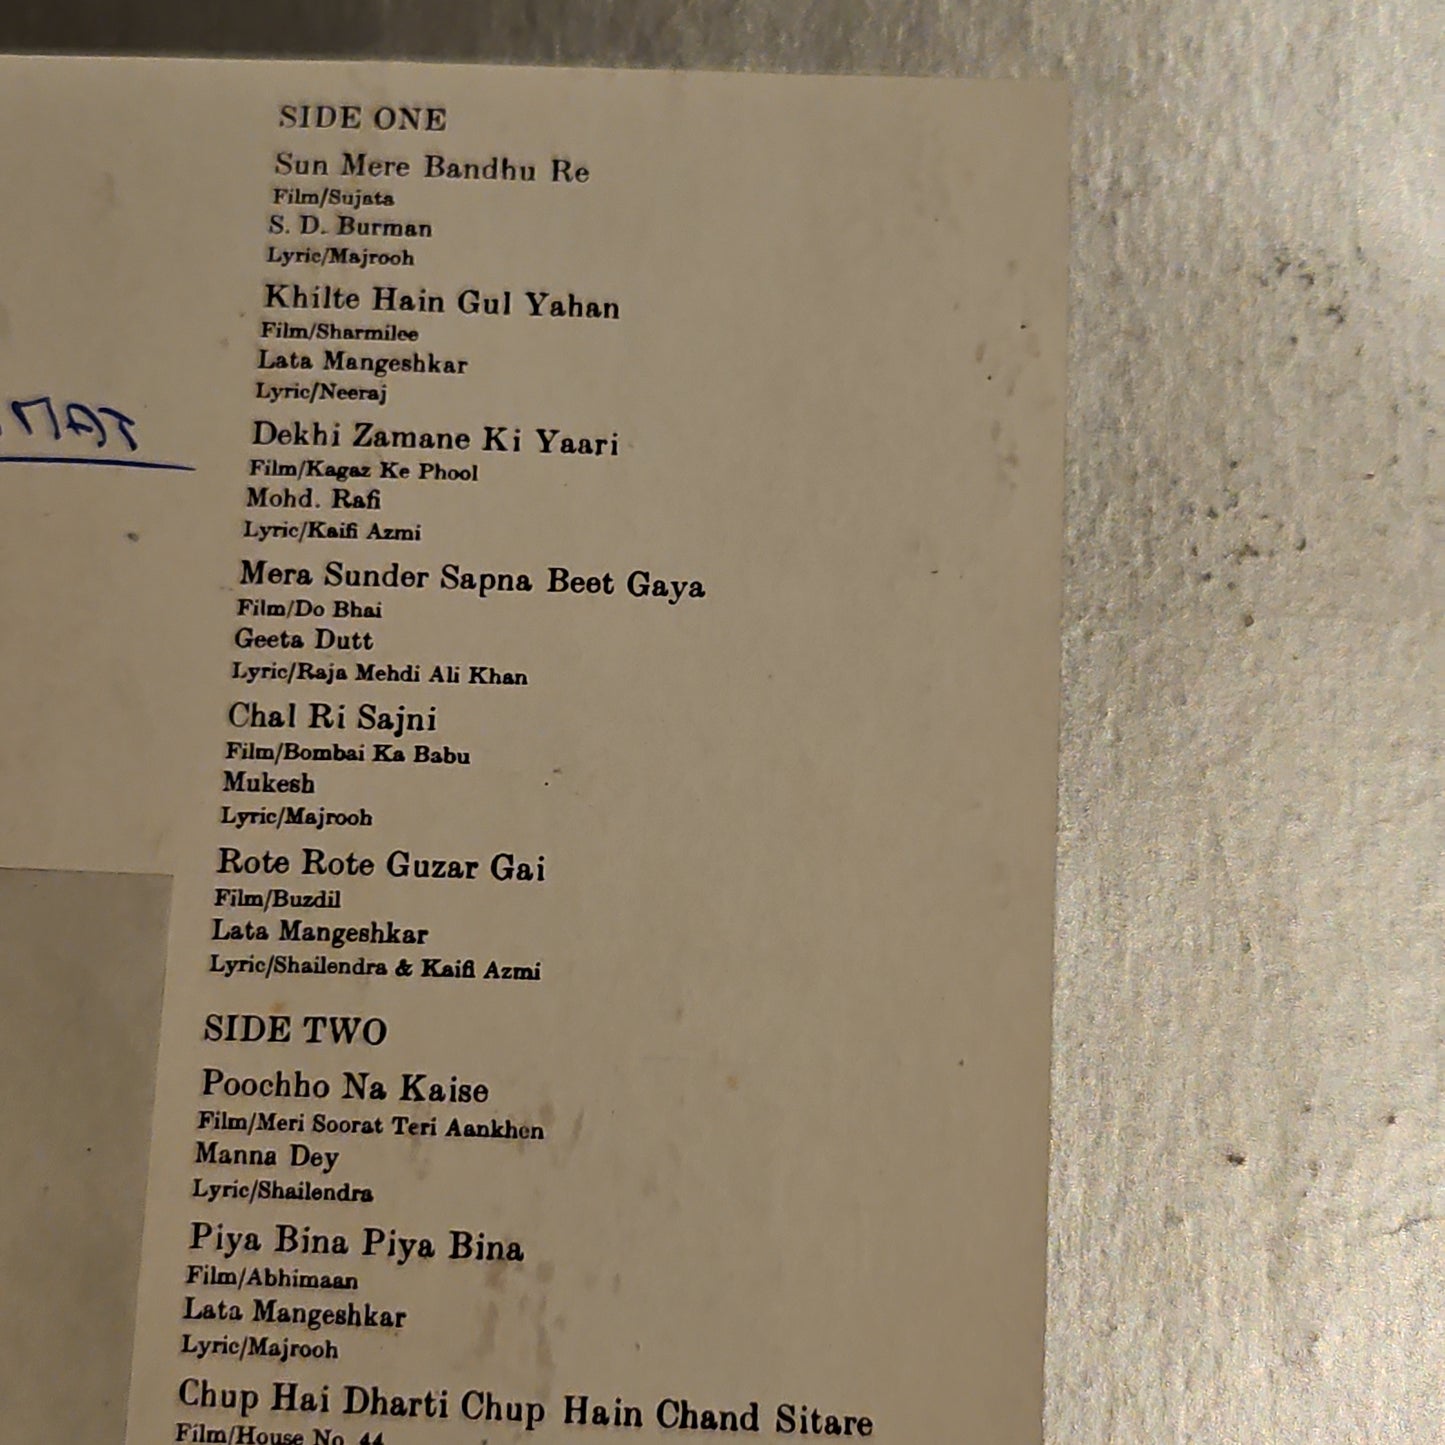 SIDE ONE
Sun Mere Bandhu Re
Film/Sujata
S. D. Burman
Lyric/Majrooh
Khilte Hain Gul Yahan
Film/Sharmilee
Lata Mangeshkar
Lyric/Neeraj
Dekhi Zamane Ki Yaari
Film/Kagaz Ke Phool
Mohd. Rafi
Lyric/Kaifi Azmi
Mera Sunder Sapna Beet Gaya
Film/Do Bhai
Geeta Dutt
Lyric/Raja Mehdi Ali Khan
Chal Ri Sajni
Film/Bombai Ka Babu
Mukesh
Lyric/Majrooh
Rote Rote Guzar Gai
Film/Buzdil
Lata Mangeshkar
Lyric/Shailendra & Kaifi Azmi
SIDE TWO
Poochho Na Kaise
Film/Meri Soorat Teri Aankhen
Manna Dey
Lyric/Shailendra
Piya Bina Piya Bina
Film/Abhimaan
Lata Mangeshkar
Lyric/Majrooh
Chup Hai Dharti Chup Hain Chand Sitare
Film/House No. 44